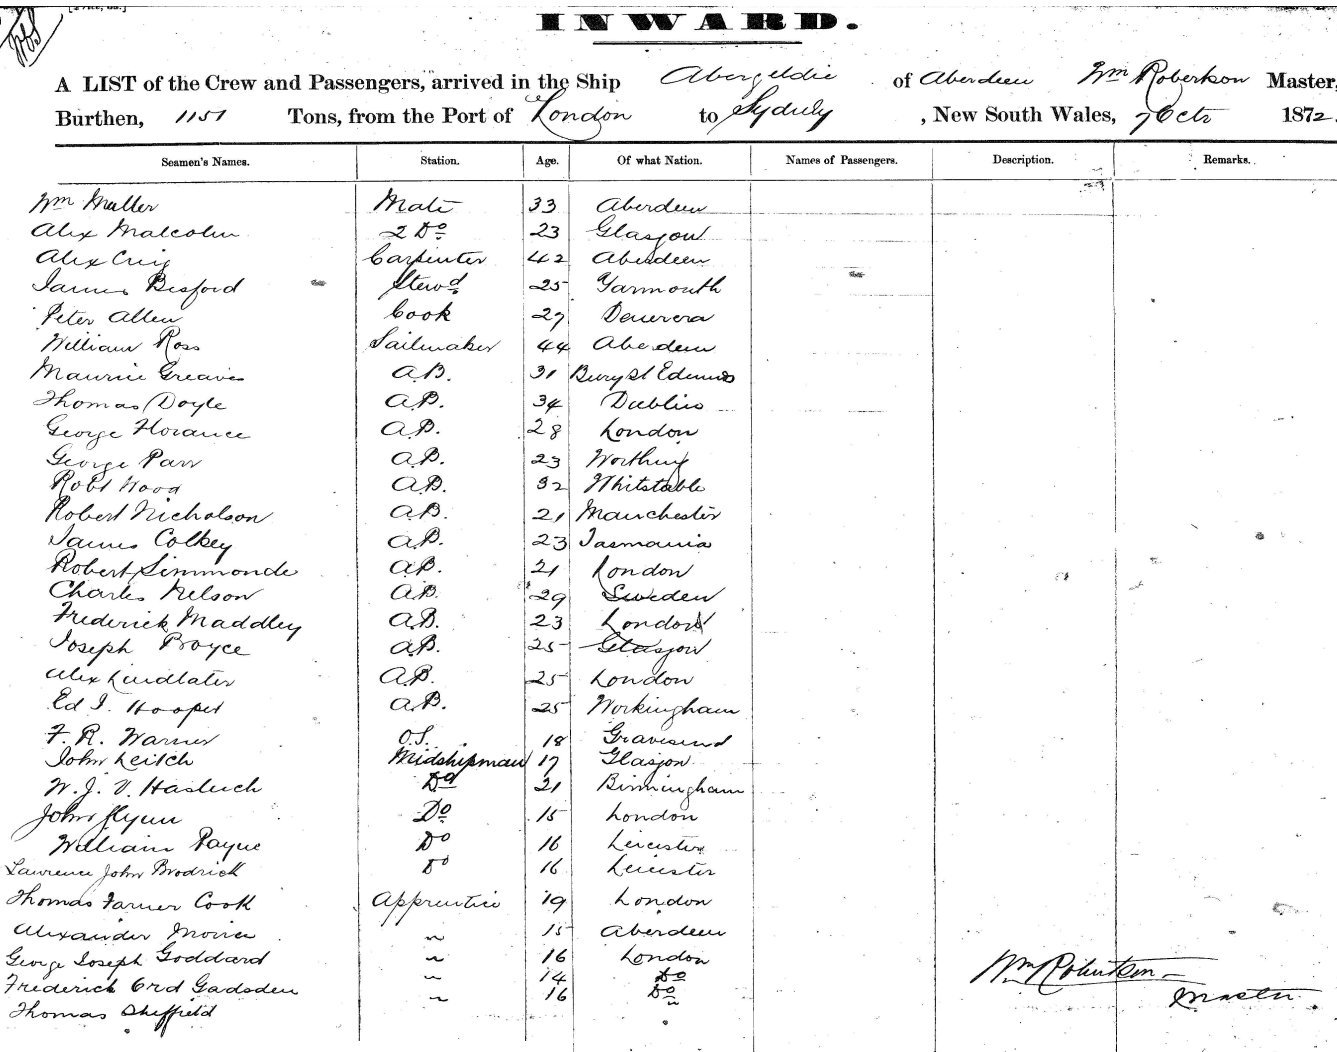 INWARD.
A LIST of the Crew and Passengers, arrived in the Ship Abergeldie of Aberdeen Wm Robertson Master,
Burthen, 1151 Tons, from the Port of London to Sydney, New South Wales, 7 Octr 1872.
Seamen's Names. Station. Age. Of what Nation. Names of Passengers. Description. Remarks.
Wm Muller Mate 33 Aberdeen
Alex Malcolm 2 Do 23 Glasgow
Alex Craig Carpenter 42 Aberdeen
James Besford Stewd 25 Yarmouth
Peter Allen Cook 27 Demerera
William Ross Sailmaker 44 Aberdeen
Maurice Greaves A.B. 31 Bury St Edmunds
Thomas Doyle A.B. 34 Dublin
George Florance A.B. 28 London
George Parr A.B. 23 Worthing
Robt Wood A.B. 32 Whitstable
Robert Nicholson A.B. 21 Manchester
James Colkey A.B. 23 Tasmania
Robert Simmonds A.B. 21 London
Charles Nelson A.B. 29 Sweden
Frederick Maddley A.B. 23 London
Joseph Boyce A.B. 25 Glasgow
Alex Lindlater A.B. 25 London
Ed J. Hooper A.B. 25 Workingham
F. R. Warner O.S. 18 Gravesend
John Leitch Midshipman 17 Glasgow
W. J. V. Hasluch Do 21 Birmingham
John Flynn Do 15 London
William Payne Do 16 Leicester
Lawrence John Brodrick Do 16 Leicester
Thomas Farmer Cook Apprentice 19 London
Alexander Moirer " 15 Aberdeen
George Joseph Goddard " 16 London
Frederick Ord Gadsden " 14 Do
Thomas Sheffield " 16 Do
Wm Robertson
Master